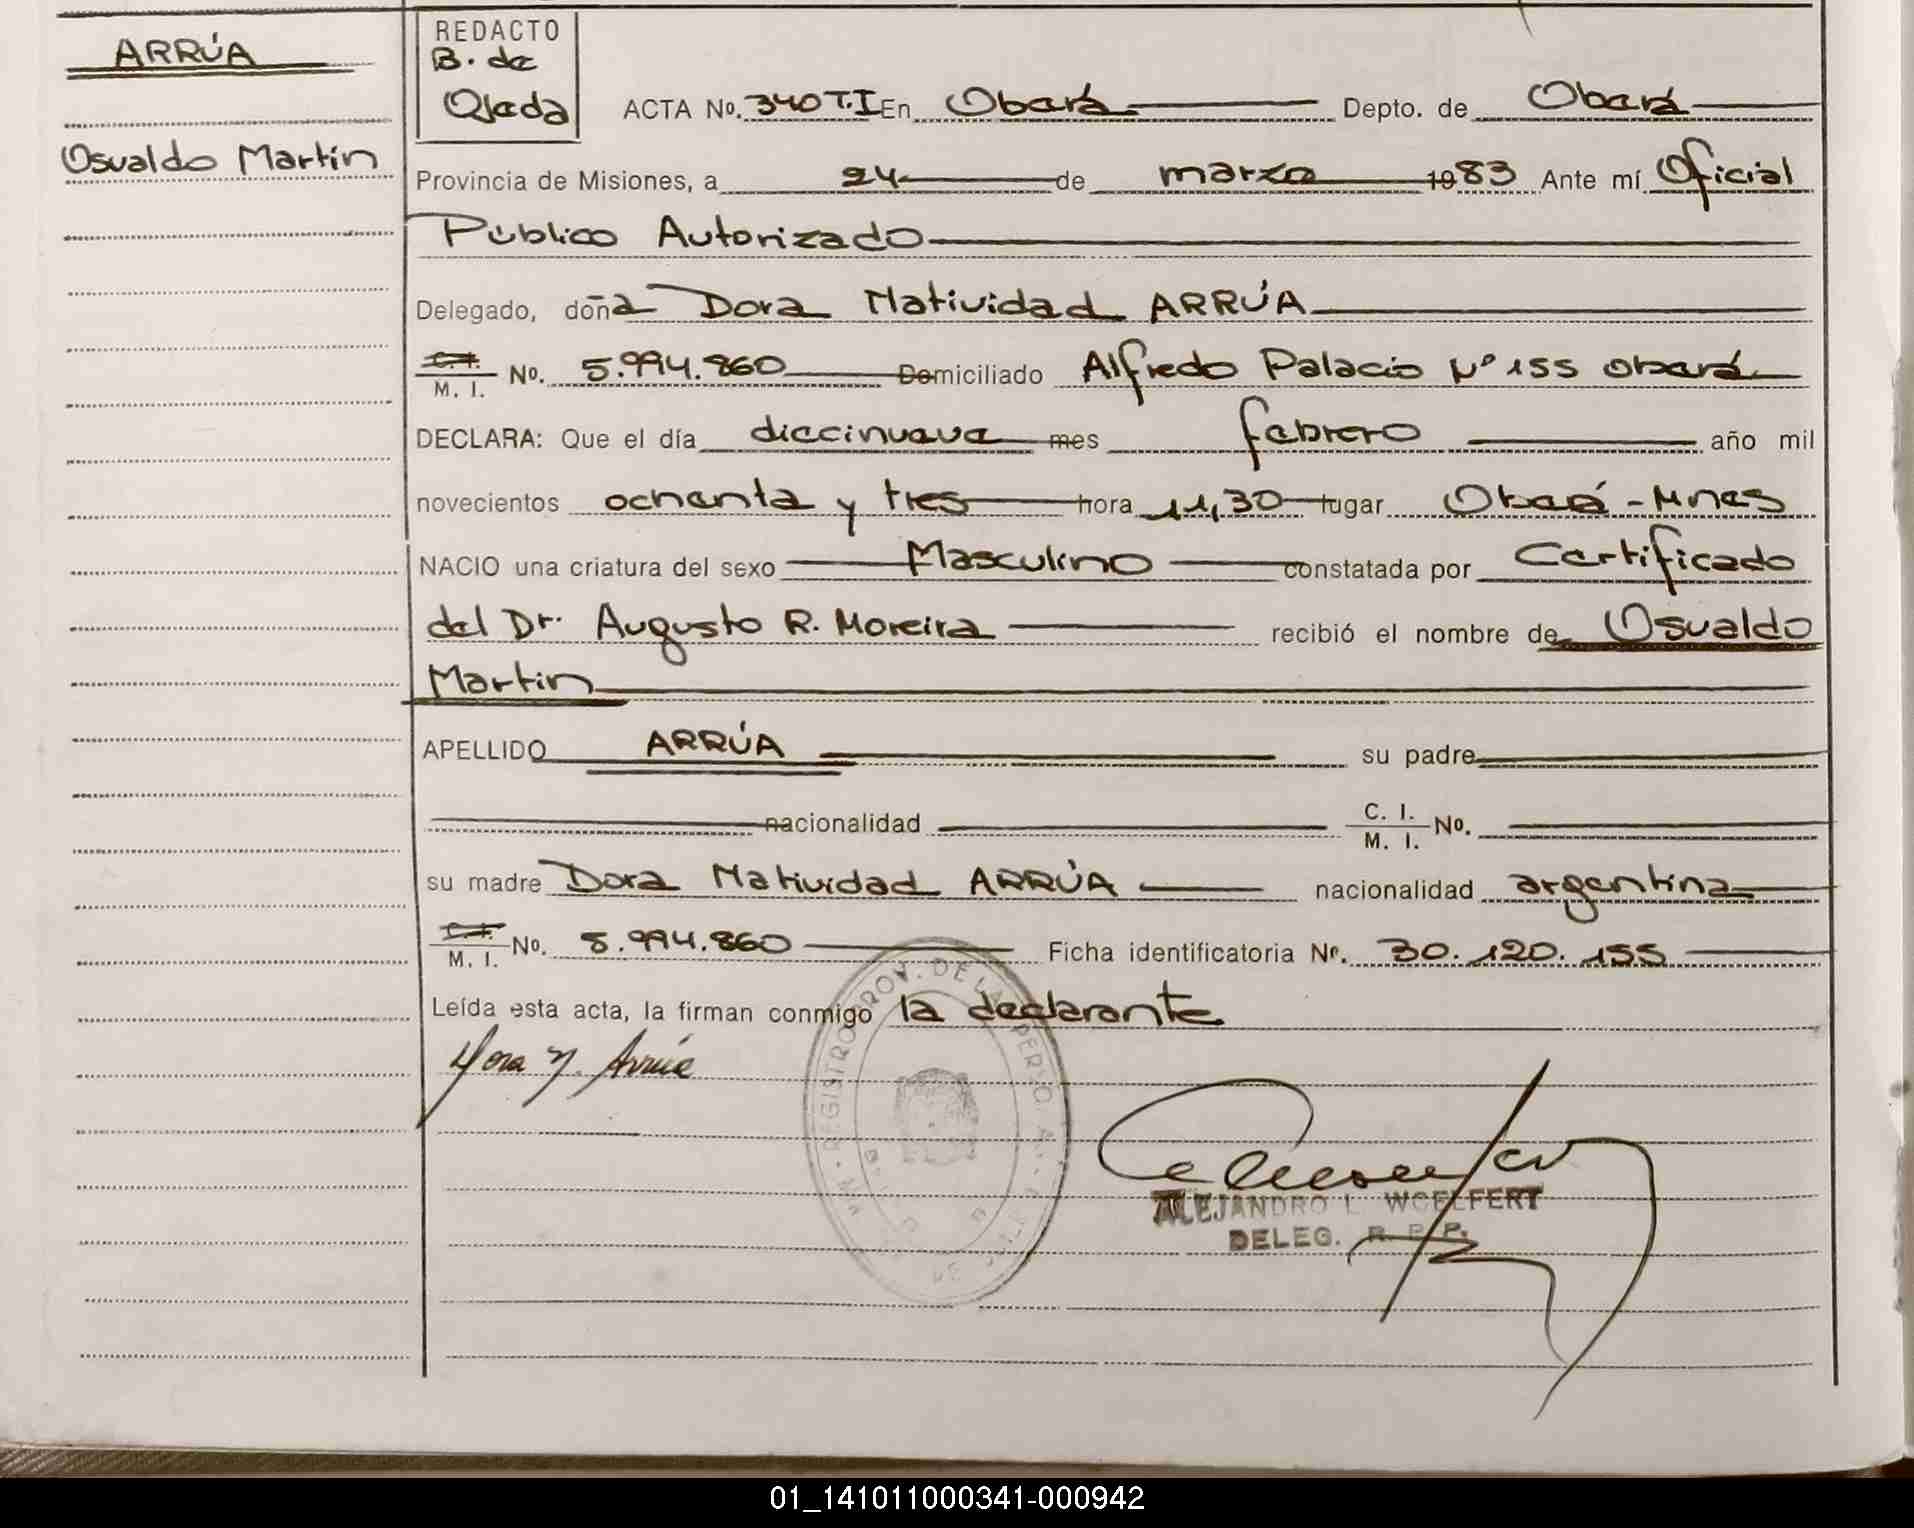 ARRÚA
Osvaldo Martín
REDACTO
B. de
Ojeda
ACTA No. 340 T.I En Oberá Depto. de Oberá
Provincia de Misiones, a 24 de marzo 1983 Ante mí Oficial
Público Autorizado
Delegado, doña Dora Natividad ARRÚA
C.I. M. I. No. 5.994.860 Domiciliado Alfredo Palacio Nº 155 Oberá
DECLARA: Que el día diecinueve mes febrero año mil
novecientos ochenta y tres hora 11,30 lugar Oberá - Mnes
NACIO una criatura del sexo Masculino constatada por Certificado
del Dr. Augusto R. Moreira recibió el nombre de Osvaldo
Martín
APELLIDO ARRÚA su padre
nacionalidad C. I. M. I. No.
su madre Dora Natividad ARRÚA nacionalidad argentina
C.I. M. I. No. 5.994.860 Ficha identificatoria Nº. 30.120.155
Leída esta acta, la firman conmigo la declarante
Dora N. Arrúa
REGISTRO PROV. DE LA
ALEJANDRO L. WOELFERT
DELEG. R. P. P.
01_141011000341-000942